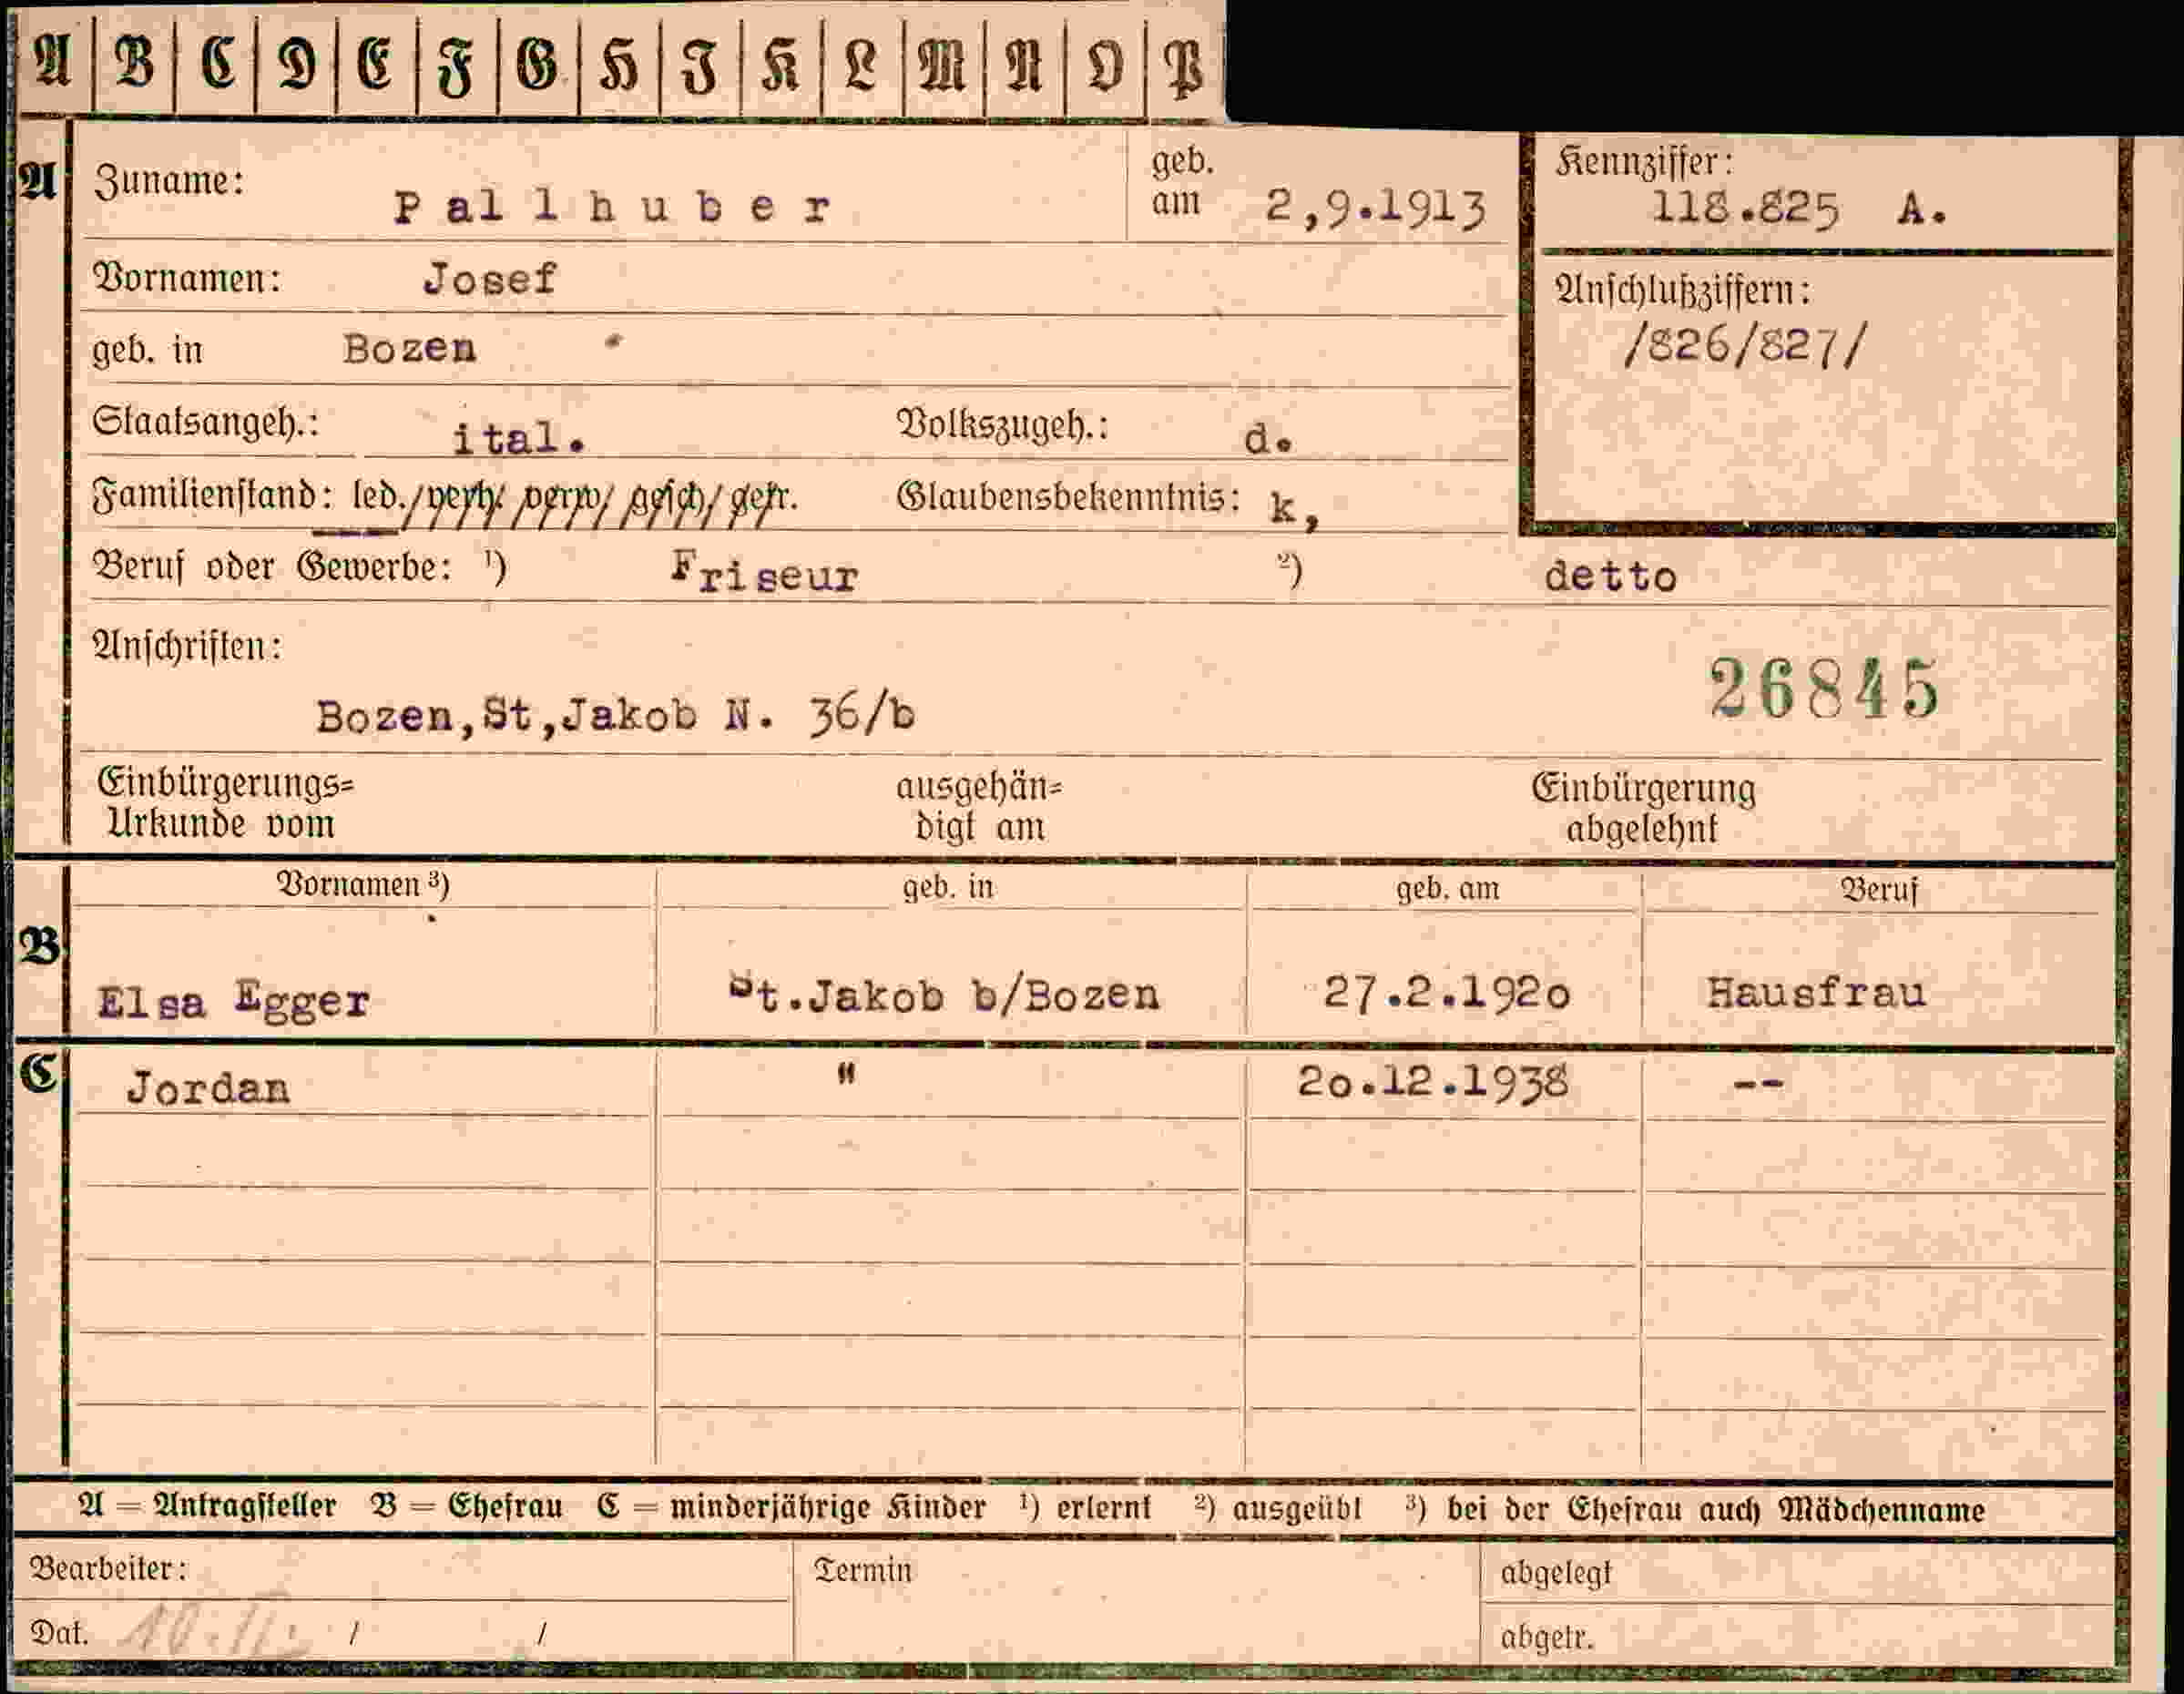 A B C D E F G H I K L M N O P
A Zuname: Pallhuber geb. am 2,9.1913 Kennziffer: 118.825 A.
Vornamen: Josef Anschlußziffern:
geb. in Bozen /826/827/
Staatsangeh.: ital. Volkszugeh.: d.
Familienstand: led./verh./verw./gesch./getr. Glaubensbekenntnis: k,
Beruf oder Gewerbe: ¹) Friseur ²) detto
Anschriften:
26845
Bozen,St,Jakob N. 36/b
Einbürgerungs= ausgehän= Einbürgerung
Urkunde vom digt am abgelehnt
Vornamen ³) geb. in geb. am Beruf
B Elsa Egger St.Jakob b/Bozen 27.2.192o Hausfrau
C Jordan " 2o.12.1938 --
A = Antragsteller B = Ehefrau C = minderjährige Kinder ¹) erlernt ²) ausgeübt ³) bei der Ehefrau auch Mädchenname
Bearbeiter: Termin abgelegt
Dat. / / abgetr.